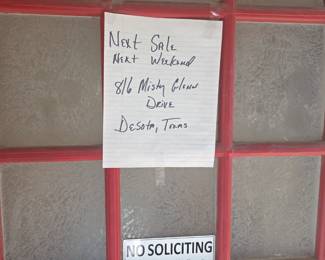 Next Sale
Next Weekend
816 Misty Glenn
Drive
Desoto, Texas
NO SOLICITING